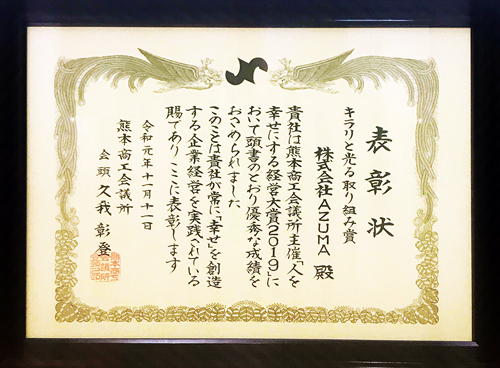 表彰状
キラリと光る取り組み賞
株式会社AZUMA 殿
貴社は熊本商工会議所主催「人を
幸せにする経営大賞2019」に
おいて頭書のとおり優秀な成績を
おさめられました
このことは貴社が常に、「幸せ」を創造
する企業経営を実践されている
賜であり ここに表彰します
令和元年十一月十一日
熊本商工会議所
会頭 久我彰登